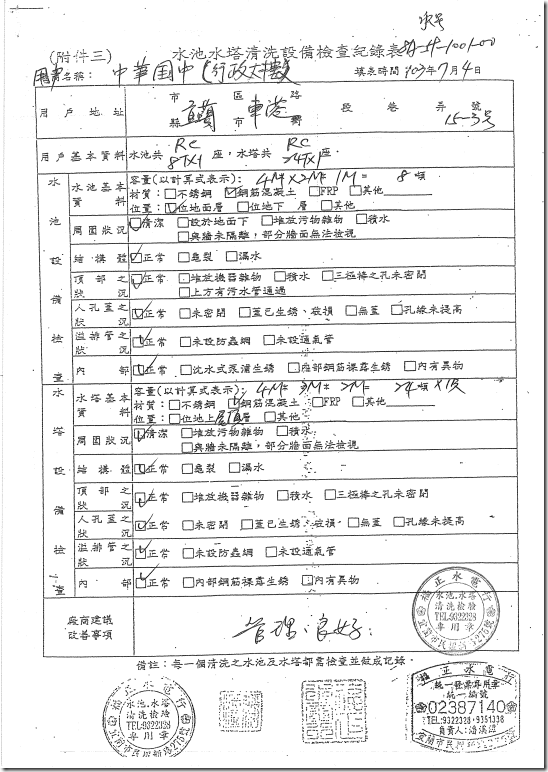 水号
(附件三) 水池水塔清洗設備檢查紀錄表 59-1001-00
用户名稱： 中華国中(行政大樓) 填表時間 103年7月4日
用戶地址 市縣 區市 東港 路 段 巷 弄 號 15-3号
用戶基本資料 水池共 RC 8T×1 座，水塔共 RC 24T×1 座。
水池設備檢查
水池基本資料 容量(以計算式表示)： 4M×2M×1M= 8 噸
材質：□不銹鋼 ☑鋼筋混凝土 □FRP □其他
位置：☑位地面層 □位地下 層 □其他
周圍狀況 ☑清潔 □設於地面下 □堆放污物雜物 □積水
□與牆未隔離，部分牆面無法檢視
結構體 ☑正常 □龜裂 □漏水
頂部之狀況 ☑正常 □堆放機器雜物 □積水 □三極棒之孔未密閉
□上方有污水管通過
人孔蓋之狀況 ☑正常 □未密閉 □蓋已生銹、破損 □無蓋 □孔緣未提高
溢排管之狀況 ☑正常 □未設防蟲網 □未設通氣管
內部 ☑正常 □沈水式泵浦生銹 □內部鋼筋裸露生銹 □內有異物
水塔設備檢查
水塔基本資料 容量(以計算式表示)： 4M× 3M× 2M= 24 噸 ×1座
材質：□不銹鋼 ☑鋼筋混凝土 □FRP □其他
位置：□位地上屋頂層 □其他
周圍狀況 ☑清潔 □堆放污物雜物 □積水
□與牆未隔離，部分牆面無法檢視
結構體 ☑正常 □龜裂 □漏水
頂部之狀況 ☑正常 □堆放機器雜物 □積水 □三極棒之孔未密閉
人孔蓋之狀況 ☑正常 □未密閉 □蓋已生銹、破損 □無蓋 □孔緣未提高
溢排管之狀況 ☑正常 □未設防蟲網 □未設通氣管
內部 ☑正常 □內部鋼筋裸露生銹 □內有異物
廠商建議改善事項 管理良好.
正水電行
水池.水塔
清洗檢驗
TEL:9322328
專用章
宜蘭市民 路275號
備註：每一個清洗之水池及水塔都需檢查並做成記錄。
正水電行
水池.水塔
清洗檢驗
TEL:9322328
專用章
宜蘭市民 路275號
正水電行
統一發票專用章
統一編號
02387140
TEL:9322328・9351338
負責人:潘
宜蘭市民